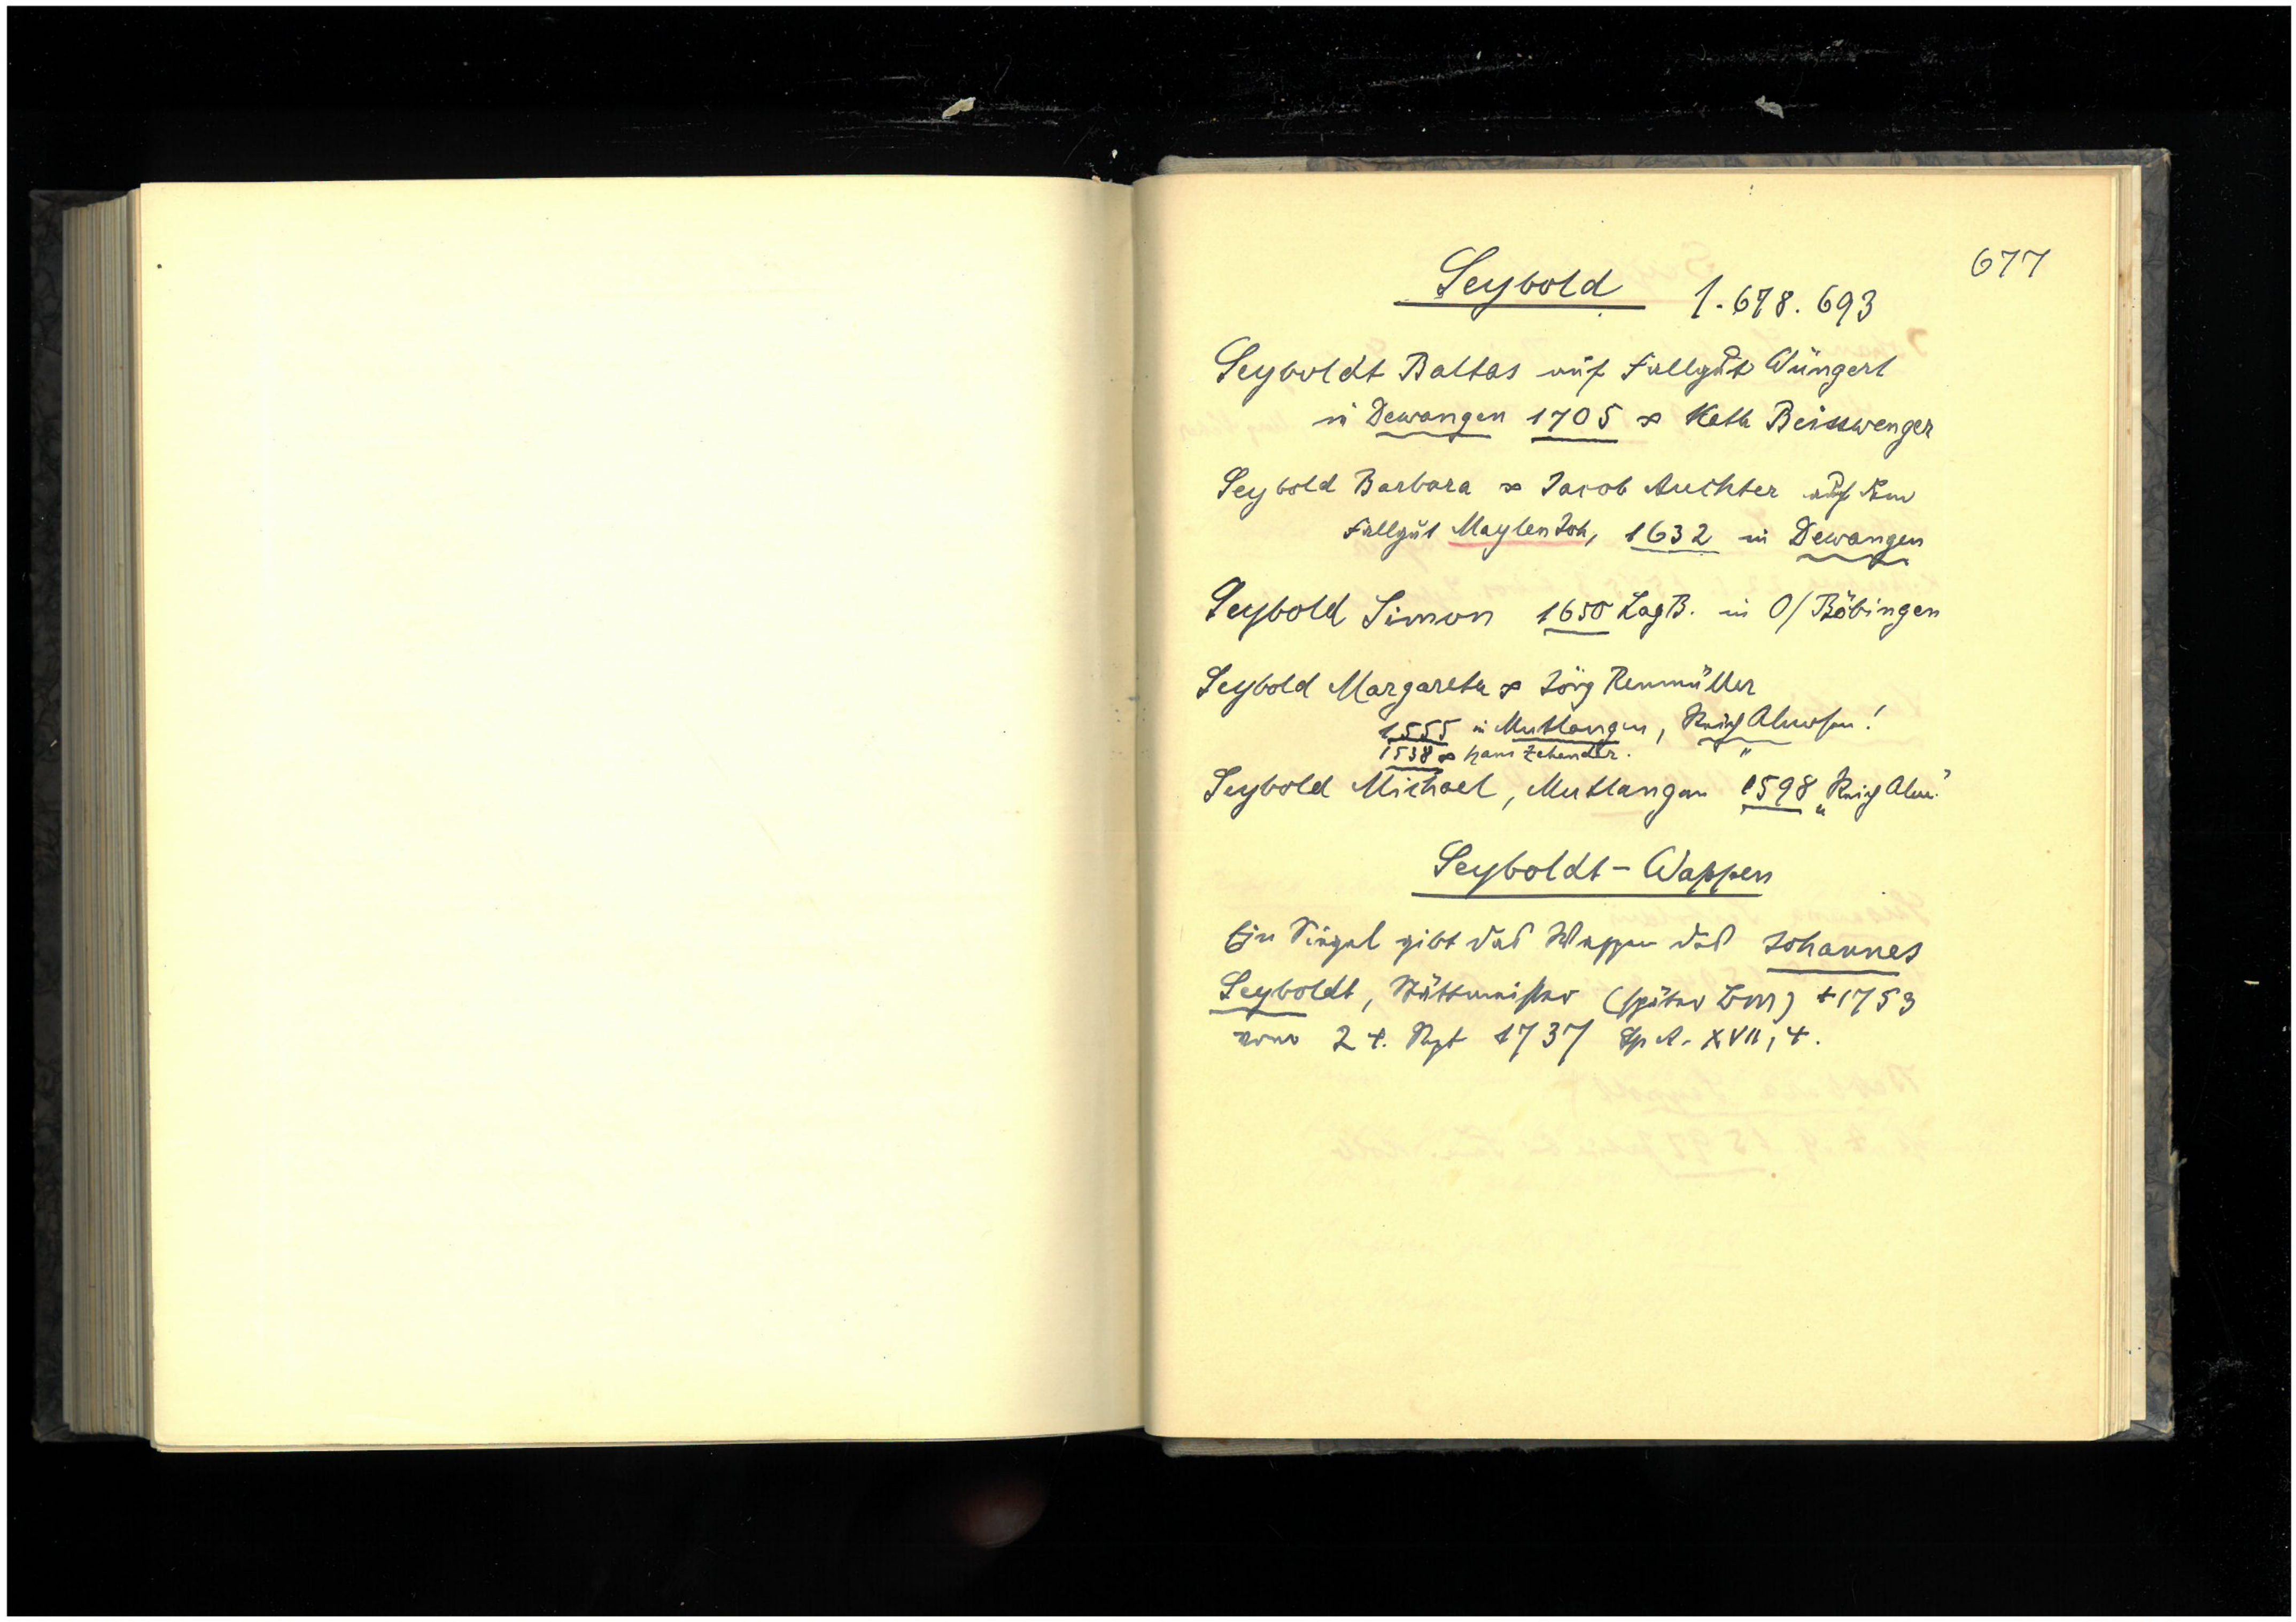 677
Seybold 1. 678. 693
Seyboldt Baltas auf Fallgut Wüngert
in Dewangen 1705 ∞ Kath Beisswenger
Seybold Barbara ∞ Jacob Auchter auf dem
Fallgut Maylen Joh, 1632 in Dewangen
Seybold Simon 1650 LagB. in O/Böbingen
Seybold Margareta ∞ Jörg Renmüller
1555 in Mutlangen, Reich Almosen!
1538 ∞ Hans Zehender. "
Seybold Michael, Mutlangen 1598 „Reich Alm."
Seyboldt-Wappen
Ein Siegel gibt das Wappen des Johannes
Seyboldt, Stättmeister (später BM) +1753
vom 24. Sept 1737 SpA. XVII, 4.